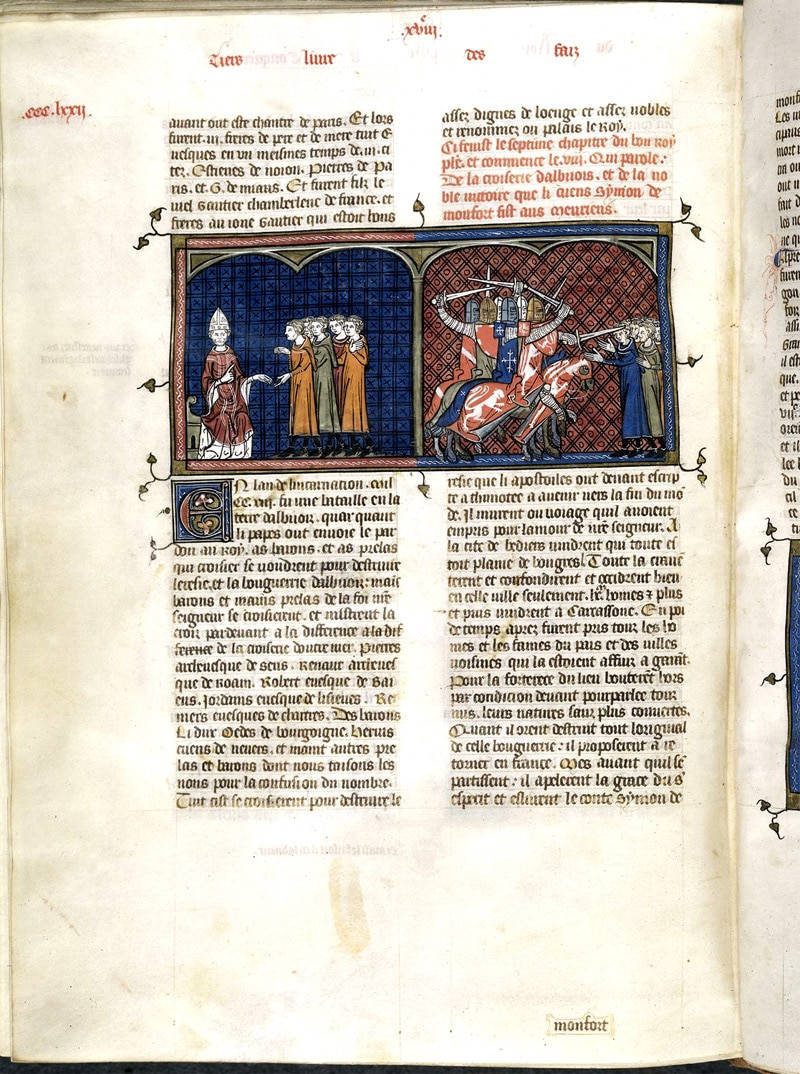 .xviii.
c
Tiers liure des faiz
.ccc.lxxij.
auant out este chantre de paris. Et lors
furent .iii. freres de pere et de mere tuit E
uesques en vn meismes temps de .iii. ci
tez. Estienes de noion. Pierres de Pa
ris. et .G. de miaus. Et furent filz le
uiel Gautier chamberlenc de france. et
freres au ione Gautier qui estoit bons
assez dignes de loenge et assez nobles
et renommez ou palais le Roy.
Ci fenist le septime chapitre du bon roy
phe. et commence le .viii. Qui parole.
De la croiserie dalbiiois. et de la no
ble uictoire que li cuens Symon de
monfort fist aus
EN lan de lincarnation .mil
CC. fu vne bataille en la
terre dalbiiois. quar quant
li papes out enuoie le par
don au roy. as barons. et as prelas
qui croisier se uoudrent pour destruire
leresie. et la bouguerie dalbiiois: mais
barons et mains prelas de la foi nre
seigneur se croisierent. et mistrent la
croiz par deuant a la difference a la dif
ference de la croiserie doutre mer. Pierres
arceuesque de sens. Renaut
que de Roam. Robert euesque de Bai
eus. Jordains euesque de lisieues. Re
niers euesques de chartres. Des barons
Li dux Oedes de bourgoigne. Heruis
cuens de neuers. et maint autres pre
las et barons dont nous taisons les
nons pour la confusion du nombre.
Tuit cist se croisierent pour destruire le
resie que li apostoiles out deuant escrip
te a thimotee a auenir uers la fin du mo
de. Il murent ou uoiage quil auoient
empris pour lamour de nre seigneur. A
la cite de bediers uindrent qui toute es
toit plaine de bougres. Toute la
terent et confondirent et occidrent bien
en celle uille seulement .lx. homes ⁊ plus
et puis uindrent a Carcassone. En poi
de temps apres furent pris touz les ho
mes et les fames du pais et des uilles
uoisines qui la estoient affuiz a garant.
Pour la forterece du lieu bouterent hors
par condicion deuant pourparlee touz
nus. leurs natures sanz plus couuertes.
Quant il orent destruit tout loriginal
de celle bouguerie: il proposerent a re
torner en france. Mes auant quil se
partissent: il apelerent la grace du s
esperit et eslurent le conte Symon de
monfort